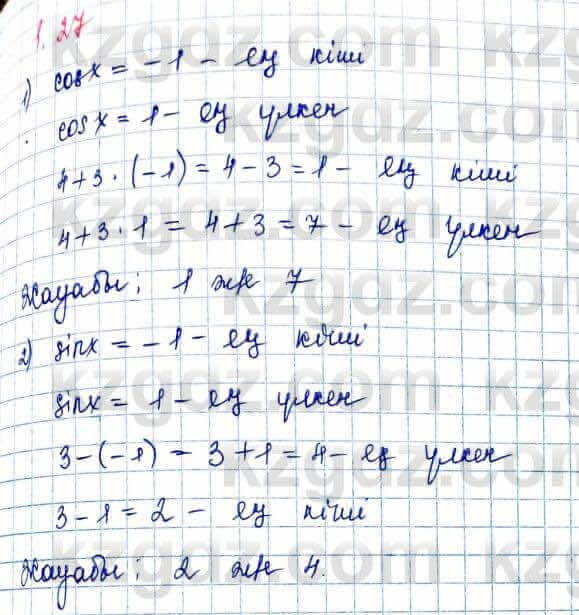 1.27
1) cosx = -1 - ең кіші
cosx = 1 - ең үлкен
4+3·(-1) = 4-3 = 1 - ең кіші
4+3·1 = 4+3 = 7 - ең үлкен
Жауабы: 1 және 7
2) sinx = -1 - ең кіші
sinx = 1 - ең үлкен
3-(-1) = 3+1 = 4 - ең үлкен
3-1 = 2 - ең кіші
Жауабы: 2 және 4.
kzgdz.com